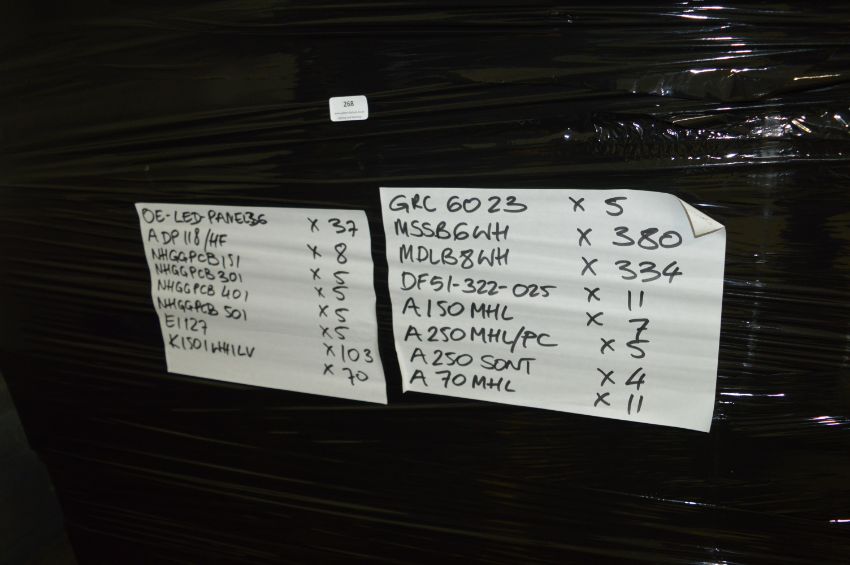 268
OE-LED-PANEL36 x 37
ADP118/HF x 8
NHGGPCB151 x 5
NHGGPCB301 x 5
NHGGPCB401 x 5
NHGGPCB501 x 5
E1127 x 103
K1501WH1LV x 70
GRC 6023 x 5
MSSB6WH x 380
MDLB8WH x 334
DF51-322-025 x 11
A150MHL x 7
A250MHL/PC x 5
A250 SONT x 4
A 70MHL x 11